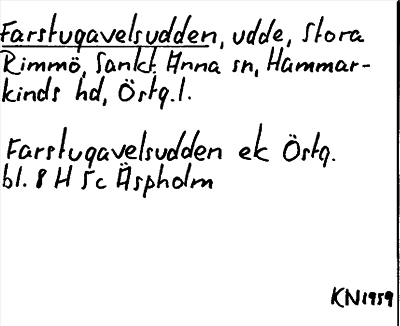 Farstugavelsudden, udde, Stora
Rimmö, Sankt Anna sn, Hammar-
kinds hd, Östg.l.
Farstugavelsudden ek Östg.
bl. 8 H 5c Äspholm
KN1959